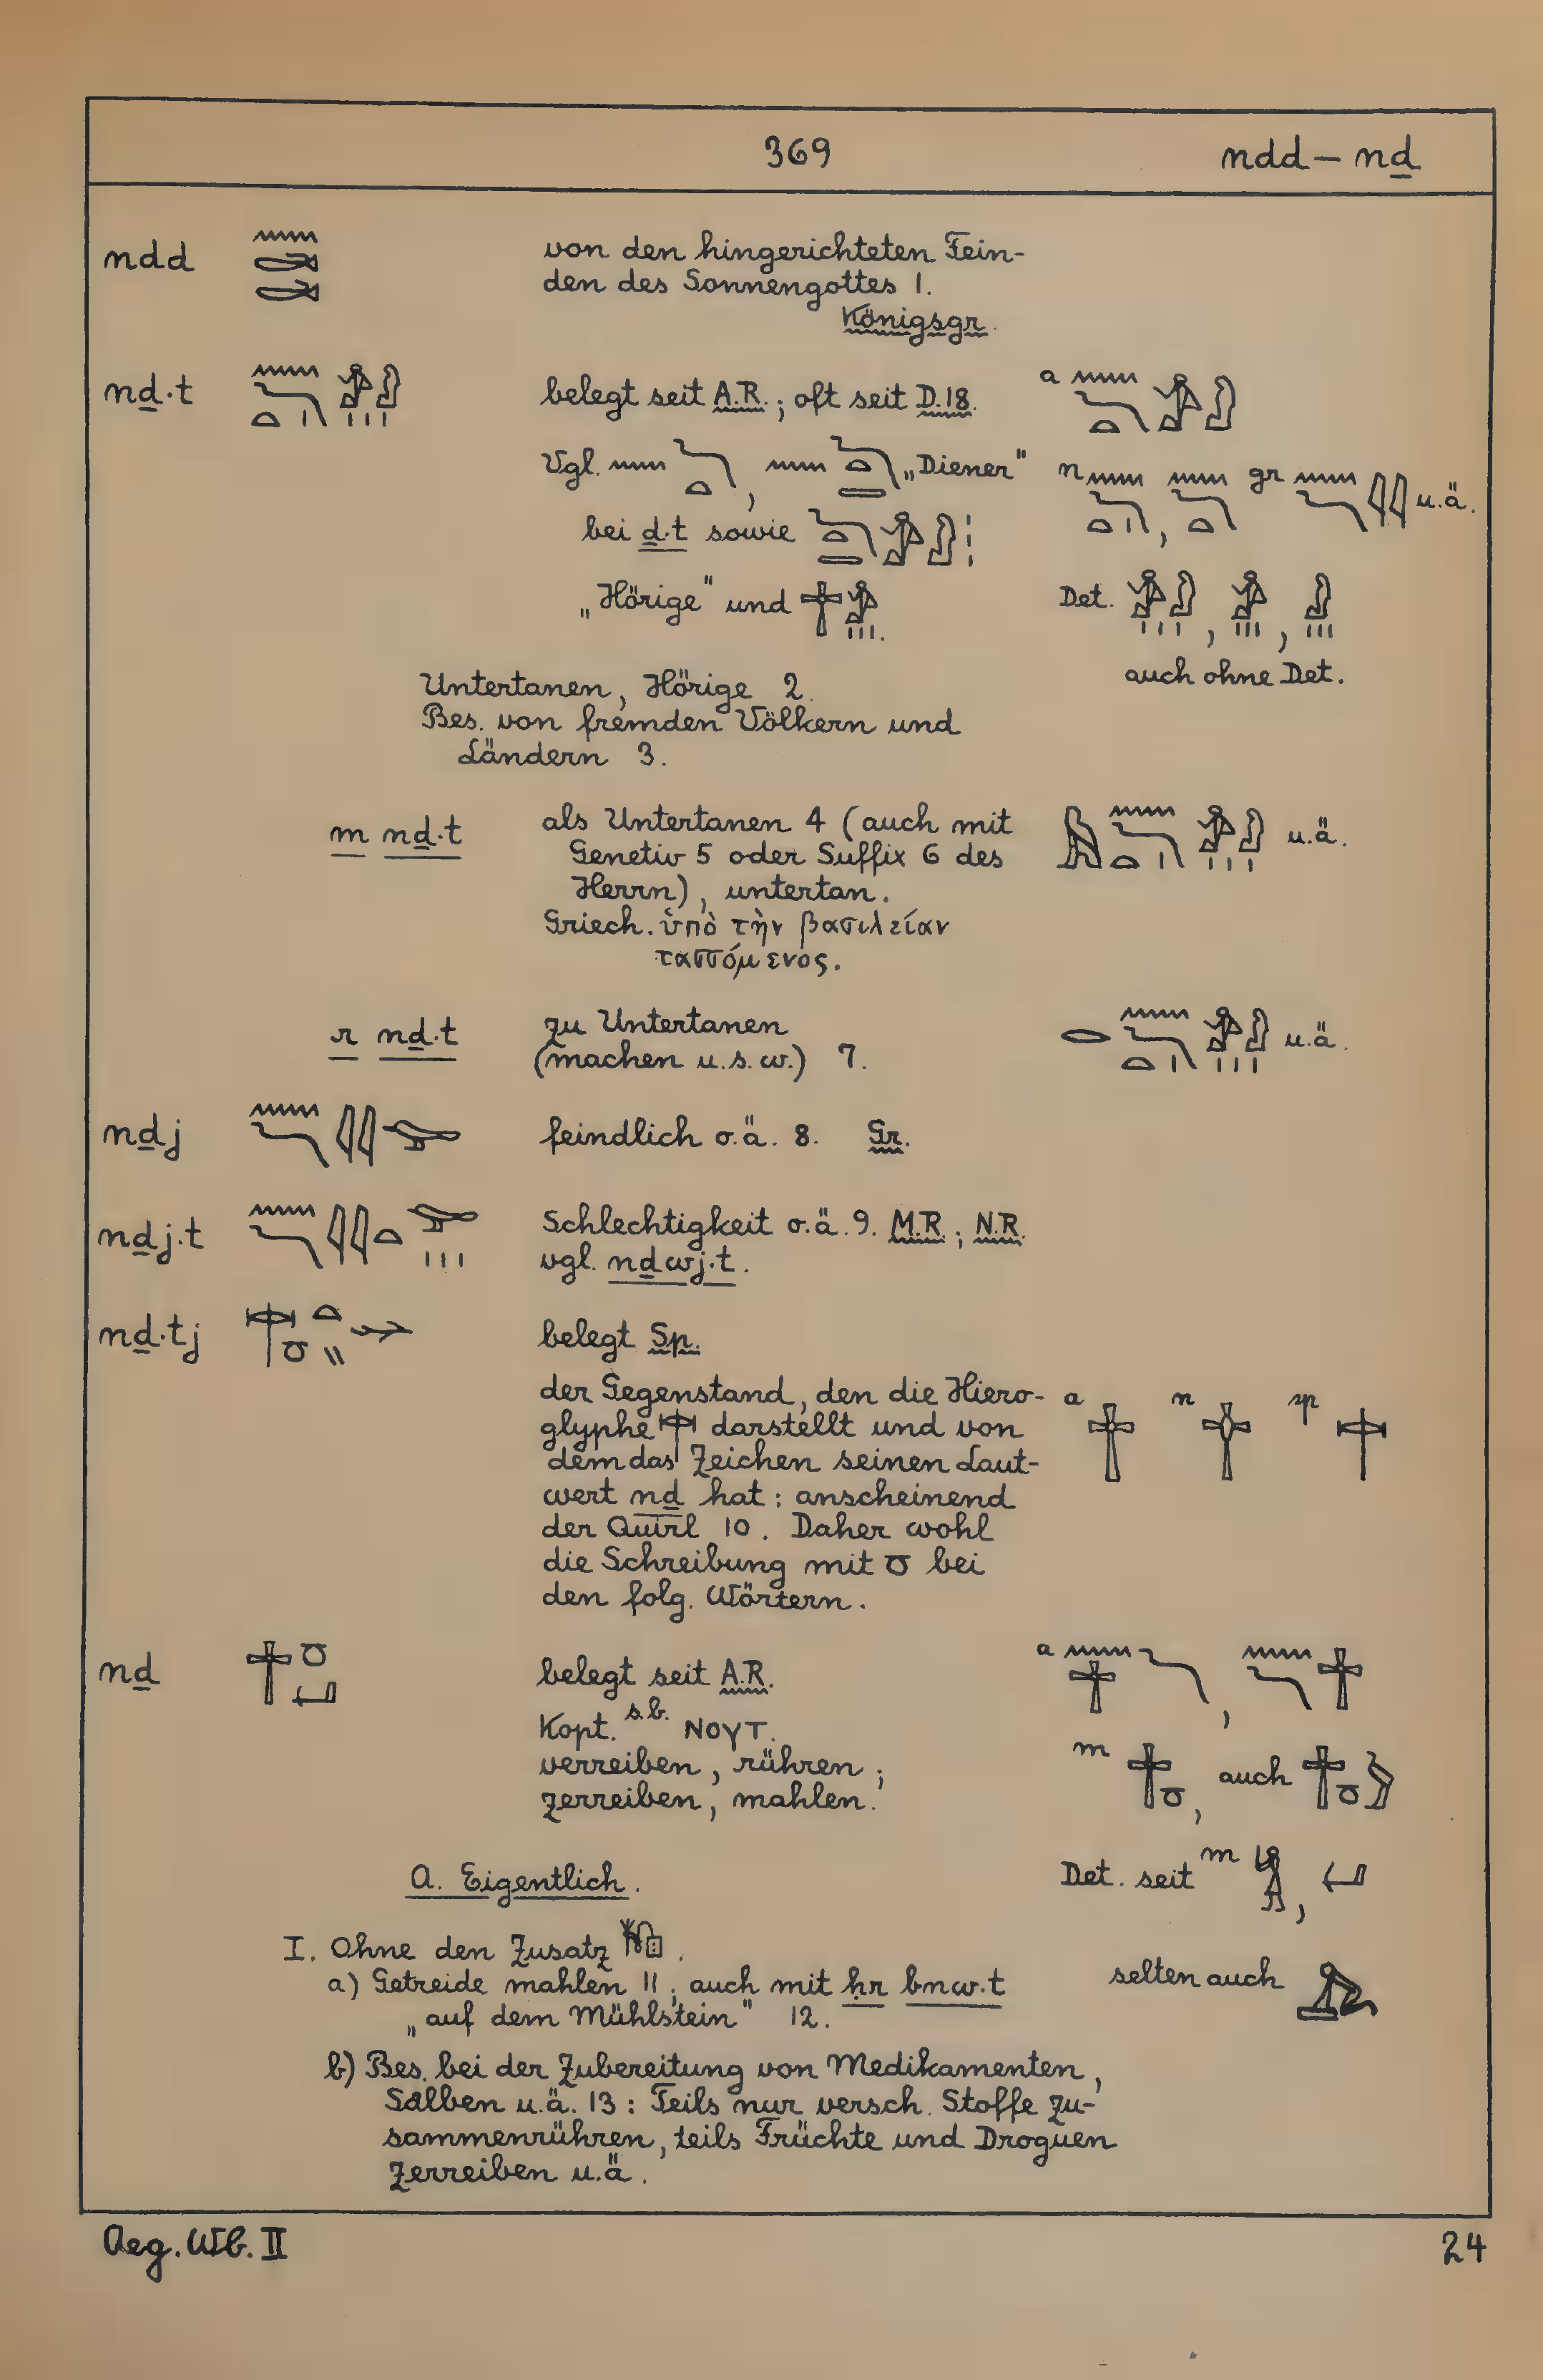 369 ndd – nḏ
ndd 𓈖𓂧𓂧 von den hingerichteten Fein-
den des Sonnengottes 1.
Königsgr.
nḏ·t belegt seit A.R.; oft seit D.18. a
Vgl. , „Diener“ n , gr u.ä.
bei ḏ·t sowie
„Hörige“ und . Det. , ,
auch ohne Det.
Untertanen, Hörige 2.
Bes. von fremden Völkern und
Ländern 3.
m nḏ·t als Untertanen 4 (auch mit u.ä.
Genetiv 5 oder Suffix 6 des
Herrn), untertan.
Griech. ὑπὸ τὴν βασιλείαν
τασσόμενος.
r nḏ·t zu Untertanen u.ä.
(machen u.s.w.) 7.
nḏj feindlich o.ä. 8. Gr.
nḏj·t Schlechtigkeit o.ä. 9. M.R.; N.R.
vgl. nḏwj·t.
nḏ·tj belegt Sp.
der Gegenstand, den die Hiero- a n sp
glyphe darstellt und von
dem das Zeichen seinen Laut-
wert nḏ hat: anscheinend
der Quirl 10. Daher wohl
die Schreibung mit 𓏌 bei
den folg. Wörtern.
nḏ belegt seit A.R. a ,
Kopt. s.b. ⲚⲞⲨⲦ.
verreiben, rühren; m , auch
zerreiben, mahlen.
A. Eigentlich. Det. seit m ,
I. Ohne den Zusatz .
a) Getreide mahlen 11; auch mit ḥr bnw.t selten auch
„auf dem Mühlstein“ 12.
b) Bes. bei der Zubereitung von Medikamenten,
Salben u.ä. 13: Teils nur versch. Stoffe zu-
sammenrühren, teils Früchte und Droguen
zerreiben u.ä.
Aeg. Wb. II 24